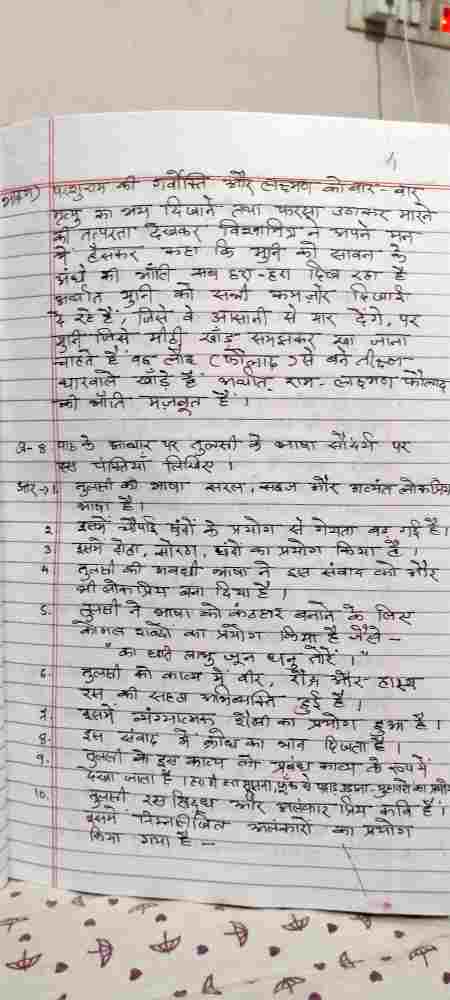 4
परशुराम की गर्वोक्ति और लक्ष्मण को बार - बार
मृत्यु का भय दिखाने तथा फरसा उठाकर मारने
की तत्परता देखकर विश्वामित्र ने अपने मन
में हँसकर कहा कि मुनि को सावन के
अंधे की भाँति सब हरा-हरा दिख रहा है
अर्थात मुनि को सभी कमज़ोर दिखाई
दे रहे हैं जिसे वे आसानी से मार देंगे, पर
मुनि जिसे मीठी खाँड़ समझकर खा जाना
चाहते हैं वह लौह (फौलाद) से बने तीक्ष्ण
धारवाले खाँड़े हैं अर्थात् राम-लक्ष्मण फौलाद
की भाँति मज़बूत हैं।
पाठ के आधार पर तुलसी के भाषा सौंदर्य पर
दस पंक्तियाँ लिखिए।
1. तुलसी की भाषा सरल, सहज और अत्यंत लोकप्रिय
भाषा है।
2 इसमें चौपाई छंदों के प्रयोग से गेयता बढ़ गई है।
3 इसमें दोहा, सोरठा, छंदों का प्रयोग किया है।
4 तुलसी की अवधी भाषा ने इस संवाद को और
भी लोकप्रिय बना दिया है।
5. तुलसी ने भाषा को कंठहार बनाने के लिए
कोमल शब्दों का प्रयोग किया है जैसे -
"का छति लाभु जून धनु तोरें।"
6. तुलसी की काव्य में वीर, रौद्र और हास्य
रस की सहज अभिव्यक्ति हुई है।
7. इसमें व्यंग्यात्मक शैली का प्रयोग हुआ है।
8. इस संवाद में क्रोध का भाव दिखता है।
9. तुलसी के इस काव्य को प्रबंध काव्य के रूप में
देखा जाता है।
10. तुलसी रस सिद्ध और अलंकार प्रिय कवि हैं।
इसमें निम्नलिखित अलंकारों का प्रयोग
किया गया है -